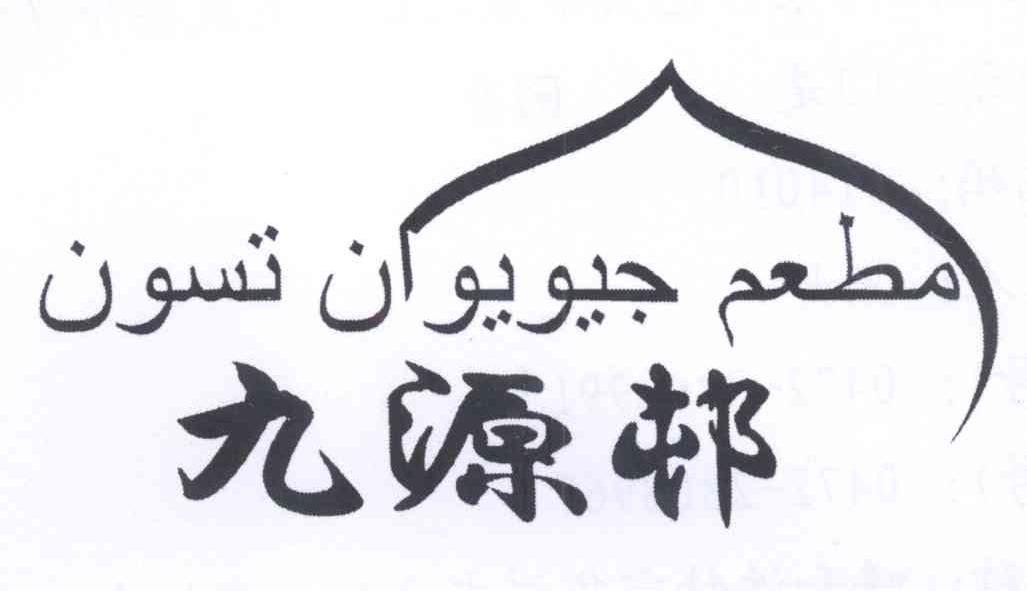 مطعم جيويوان تسون
九源邨